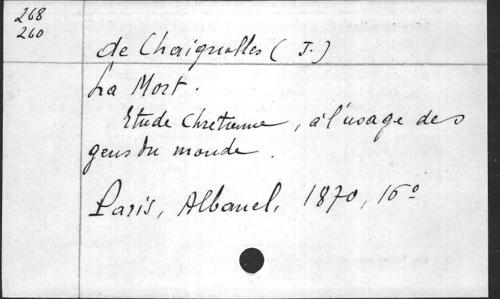 268
260
de Chaignolles (J.)
La Mort.
Etude chretienne, à l'usage des
gens du monde.
Paris, Albanel, 1870, 16º